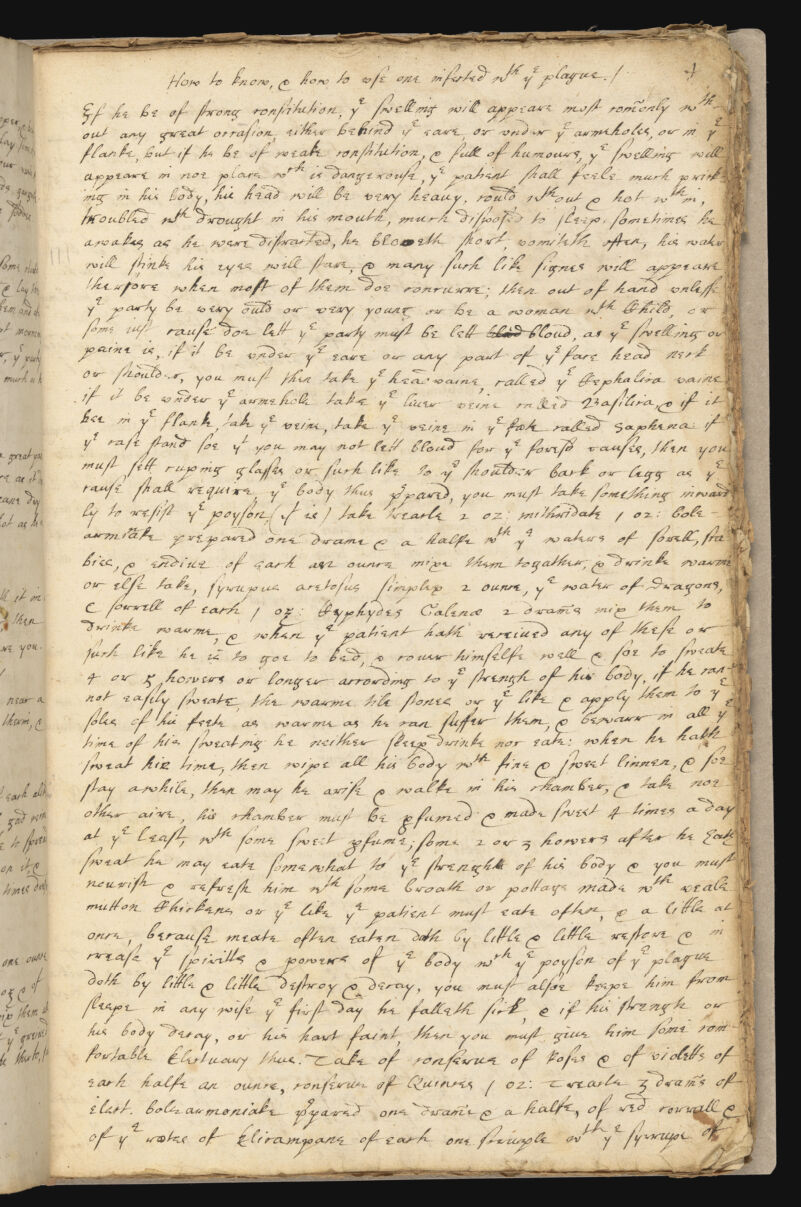 How to know, & how to use one infected wth ye plague. /
If he be of strong constitution, ye swelling will appeare most comonly wth-
out any great occasion either behind ye eare, or vnder ye armeholes, or in ye
flanke, but if he be of weake constitution, & full of humours, ye swelling will
appeare in noe place wch is dangerouse, ye patient shall feele much prick
ing in his body, his head will be very heavy, could wthout & hot wthin,
troubled wth drought in his mouth, much disposed to sleep, sometimes he
awakes as he were distracted, he bloweth short, vomiteth often, his water
will stinke his eyes will stare, & many such like signes will appeare
therfore when most of them doe concurre; then out of hand unlesse
ye party be very ould or very young or be a woman wth Child, or
some just cause doe lett ye party must be lett bloud, as ye swelling or
paine is, if it be vnder ye eare or any part of ye face head neck
or shoulder, you must then take ye head vaine, called ye Cephalica vaine
if it be vnder ye armehole take ye liuer veine called Basilica, & if it
bee in ye flank, take ye veine, take ye veine in ye called Saphena: if
ye case stand soe yt you may not lett bloud for ye foresd causes, then you
must sett cuping glasses or such like to ye shoulder back or legg as ye
cause shall require, ye body thus ppared, you must take something inward
ly to resist ye poyson (yt is) take treacle 2 oz: mithridate 1 oz: bole-
armitake prepared one drame & a halfe wth ye waters of sorell, sca
biee, & endiue of each an ounce mixe them togather, & drinke warme
or else take, syrupus acetosus simplex 2 ounce, ye water of dragons,
& sorrell of each 1 oz: Galenæ 2 drams mix them to
drinke warme, & when ye patient hath receiued any of these or
such like he is to goe to bed, & couer himselfe well & soe to sweate
4 or 5 howers or longer according to ye strength of his body, if he can-
not easily sweate, the warme tile stones or ye like & apply them to ye
soles of his feete as warme as he can suffer them, & bewarr in all ye
time of his sweating he neither sleep drinke nor eate: when he hath
sweat his time, then wipe all his body wth fine & sweet linnen, & soe
stay awhile, then may he arise & walke in his chamber, & take noe
other aire, his chamber must be pfumed & made sweet 4 times a day
at ye least, wth some sweet pfume; some 2 or 3 howers after he hath
sweat he may eate somewhat to ye strenght of his body & you must
nourish & refresh him wth some broath or pottage made wth veale
mutton Chickens or ye like ye patient must eate often, & a little at
once, because meate often eaten doth by little & little restore & in
crease ye spiritts & powers of ye body wch ye poyson of ye plague
doth by little & little destroy & decay, you must alsoe keepe him from
sleepe in any wise ye first day he falleth sick, & if his strength or
his body decay, or his hart faint, then you must giue him some com
fortable Electuary thus. Take of conserue of Roses & of violetts of
each halfe an ounce, conserue of Quinces 1 oz: Treacle 3 drams of
Elect. bolearmoniake ppared one drame & a halfe, of red corrall &
of ye rootes of Elicampane of each one scruple wth ye syrrupe of